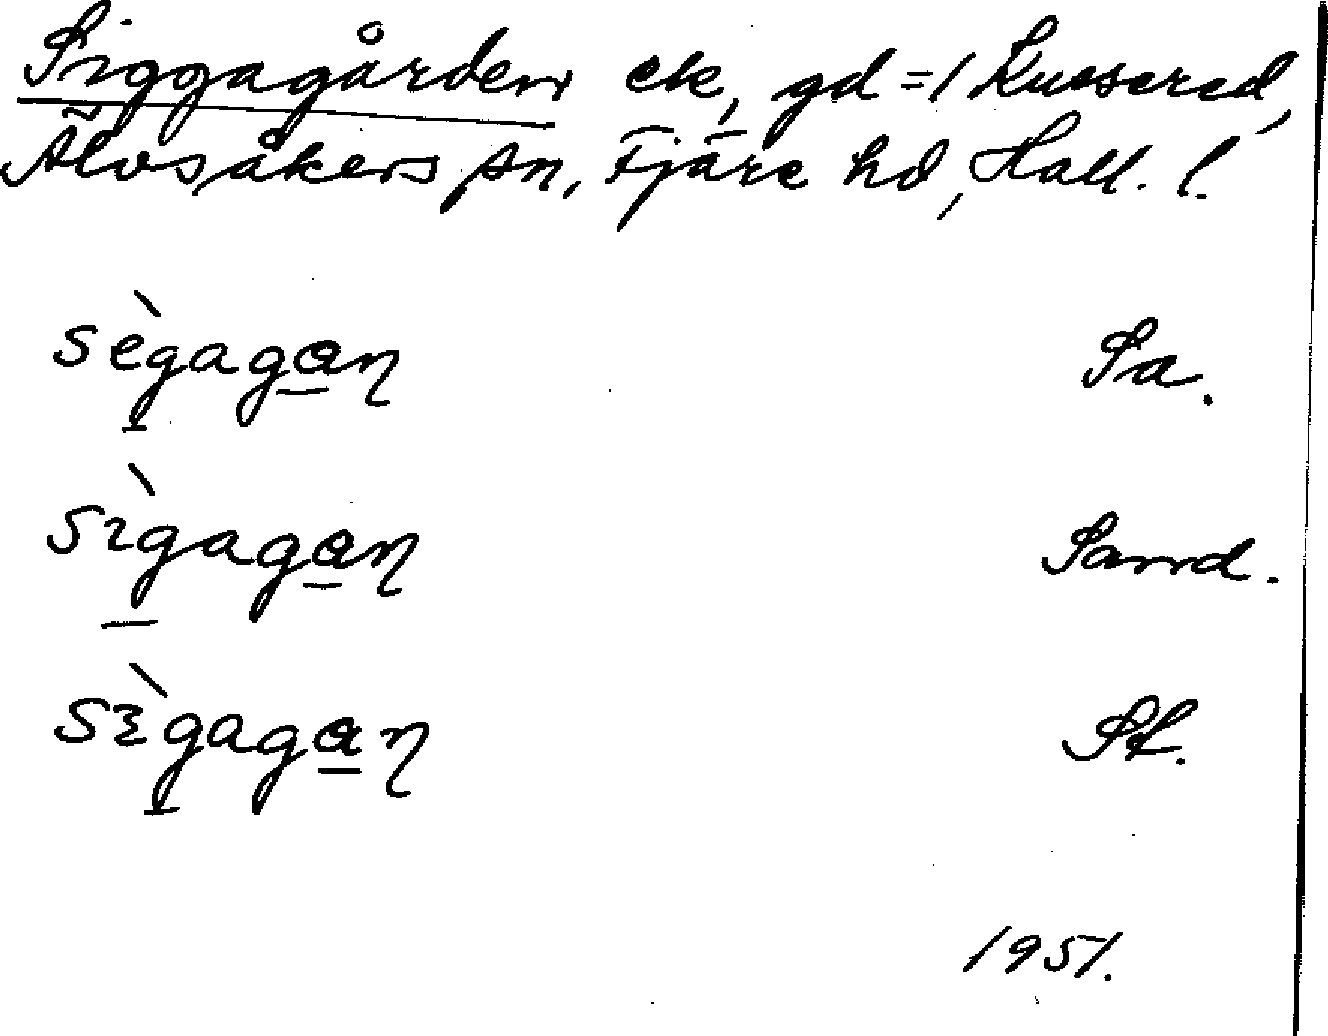 Siggagården ek, gd =/ Kussered,
Älvsåkers sn, Fjäre hd, Hall. l.
sègagan Sa.
sìgagan Sand.
sègagan St.
1951.